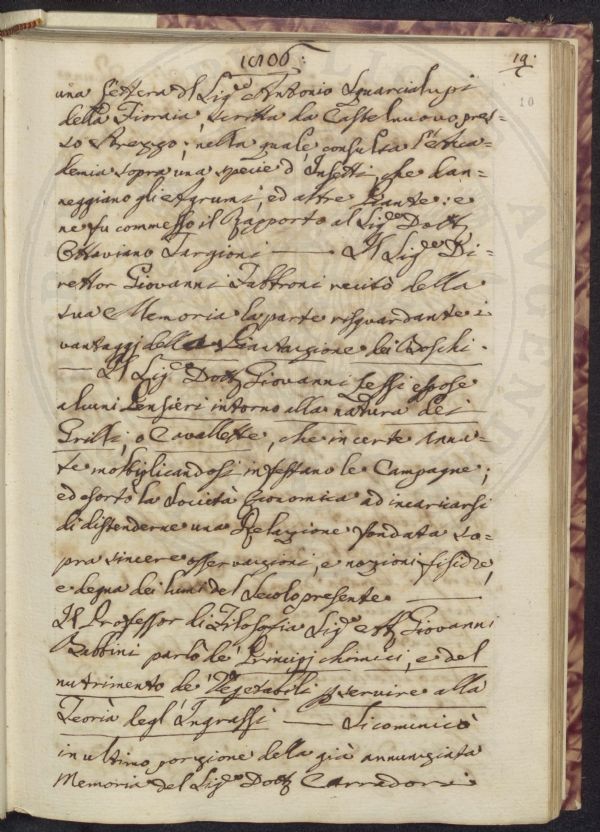 1806:
19.
10
una Lettera del Sig.e Antonio Squarcialupi
della Fioraia, scritta da Castelnuovo pres=
so Arezzo; nella quale consulta l'Acca=
demia sopra una specie d'Insetti, che dan=
neggiano gli Agrumi, ed altre Piante: e
ne fu commesso il Rapporto al Sig.e Dott.
Ottaviano Targioni — Il Sig.e Di=
rettor Giovanni Fabbroni recitò della
sua Memoria la parte risguardante i
vantaggi della Piantazione dei Boschi.
— Il Sig.e Dott. Giovanni Lessi espose
alcuni Pensieri intorno alla natura dei
Grilli, o Cavallette, che in certe Anna=
te moltiplicandosi infestano le Campagne;
ed esortò la Società Economica ad incaricarsi
di distenderne una Relazione fondata so=
pra sincere osservazioni, e nozioni fisiche,
e degna dei lumi del Secolo presente —
Il Professor di Filosofia Sig.e Giovanni
Babbini parlò de' Principj chimici, e del
nutrimento de' Vegetabili per servire alla
Teoria degl'Ingrassi — Si comunicò
in ultimo porzione della già annunziata
Memoria del Sig.e Dott. Carradori